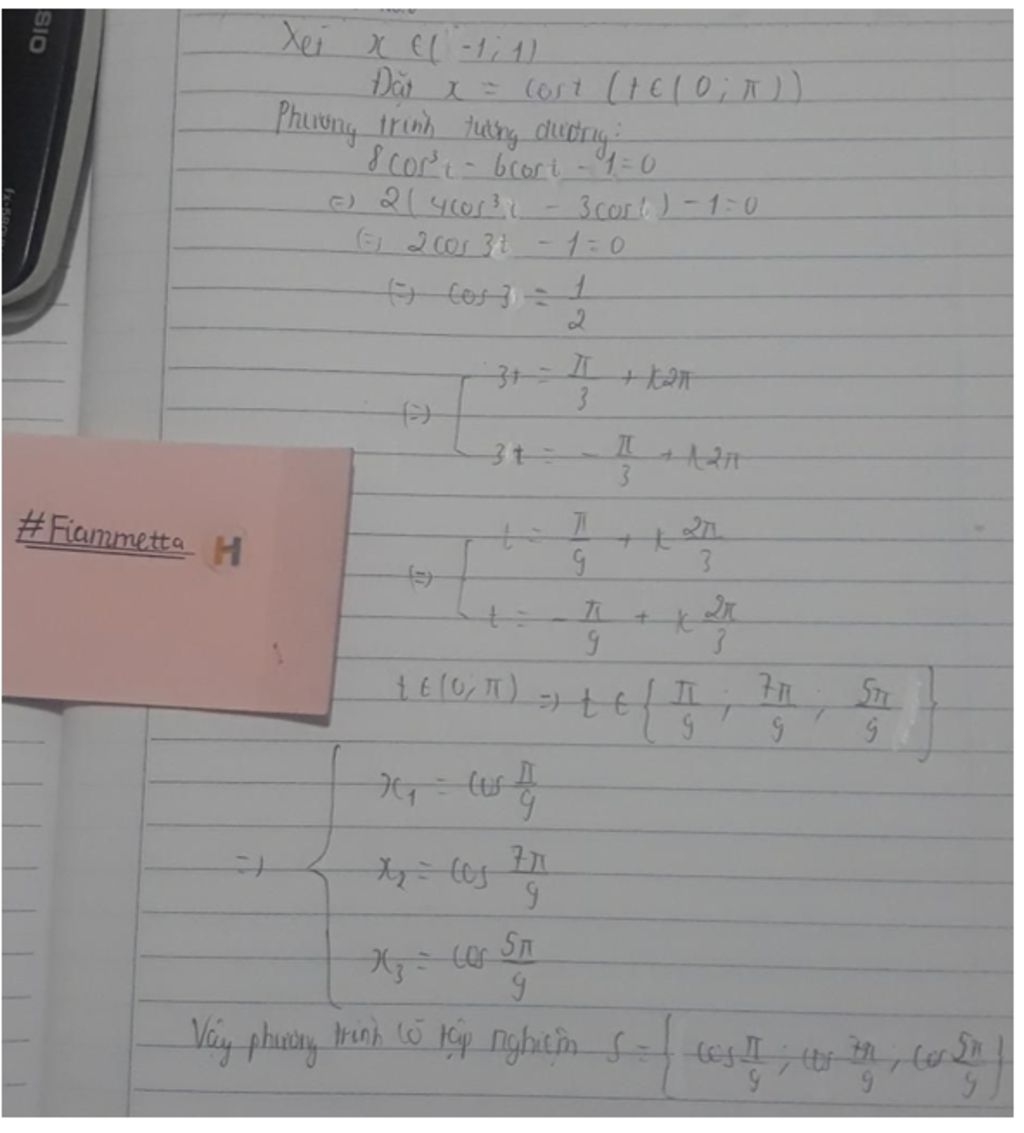 SIO
Xét x ∈ ( -1; 1)
Đặt x = cost (t ∈ ( 0; π))
Phương trình tương đương:
8cos³t - 6cost - 1 = 0
(=) 2( 4cos³t - 3cost ) - 1 = 0
(=) 2cos 3t - 1 = 0
(=) cos 3 = 1/2
(=) [ 3t = π/3 + k2π
3t = - π/3 + k2π
#Fiammetta H
(=) [ t = π/9 + k 2π/3
t = - π/9 + k 2π/3
t ∈ (0; π) => t ∈ { π/9 ; 7π/9 ; 5π/9 }
=> { x₁ = cos π/9
x₂ = cos 7π/9
x₃ = cos 5π/9
Vậy phương trình có tập nghiệm S = { cos π/9 ; cos 7π/9 , cos 5π/9 }